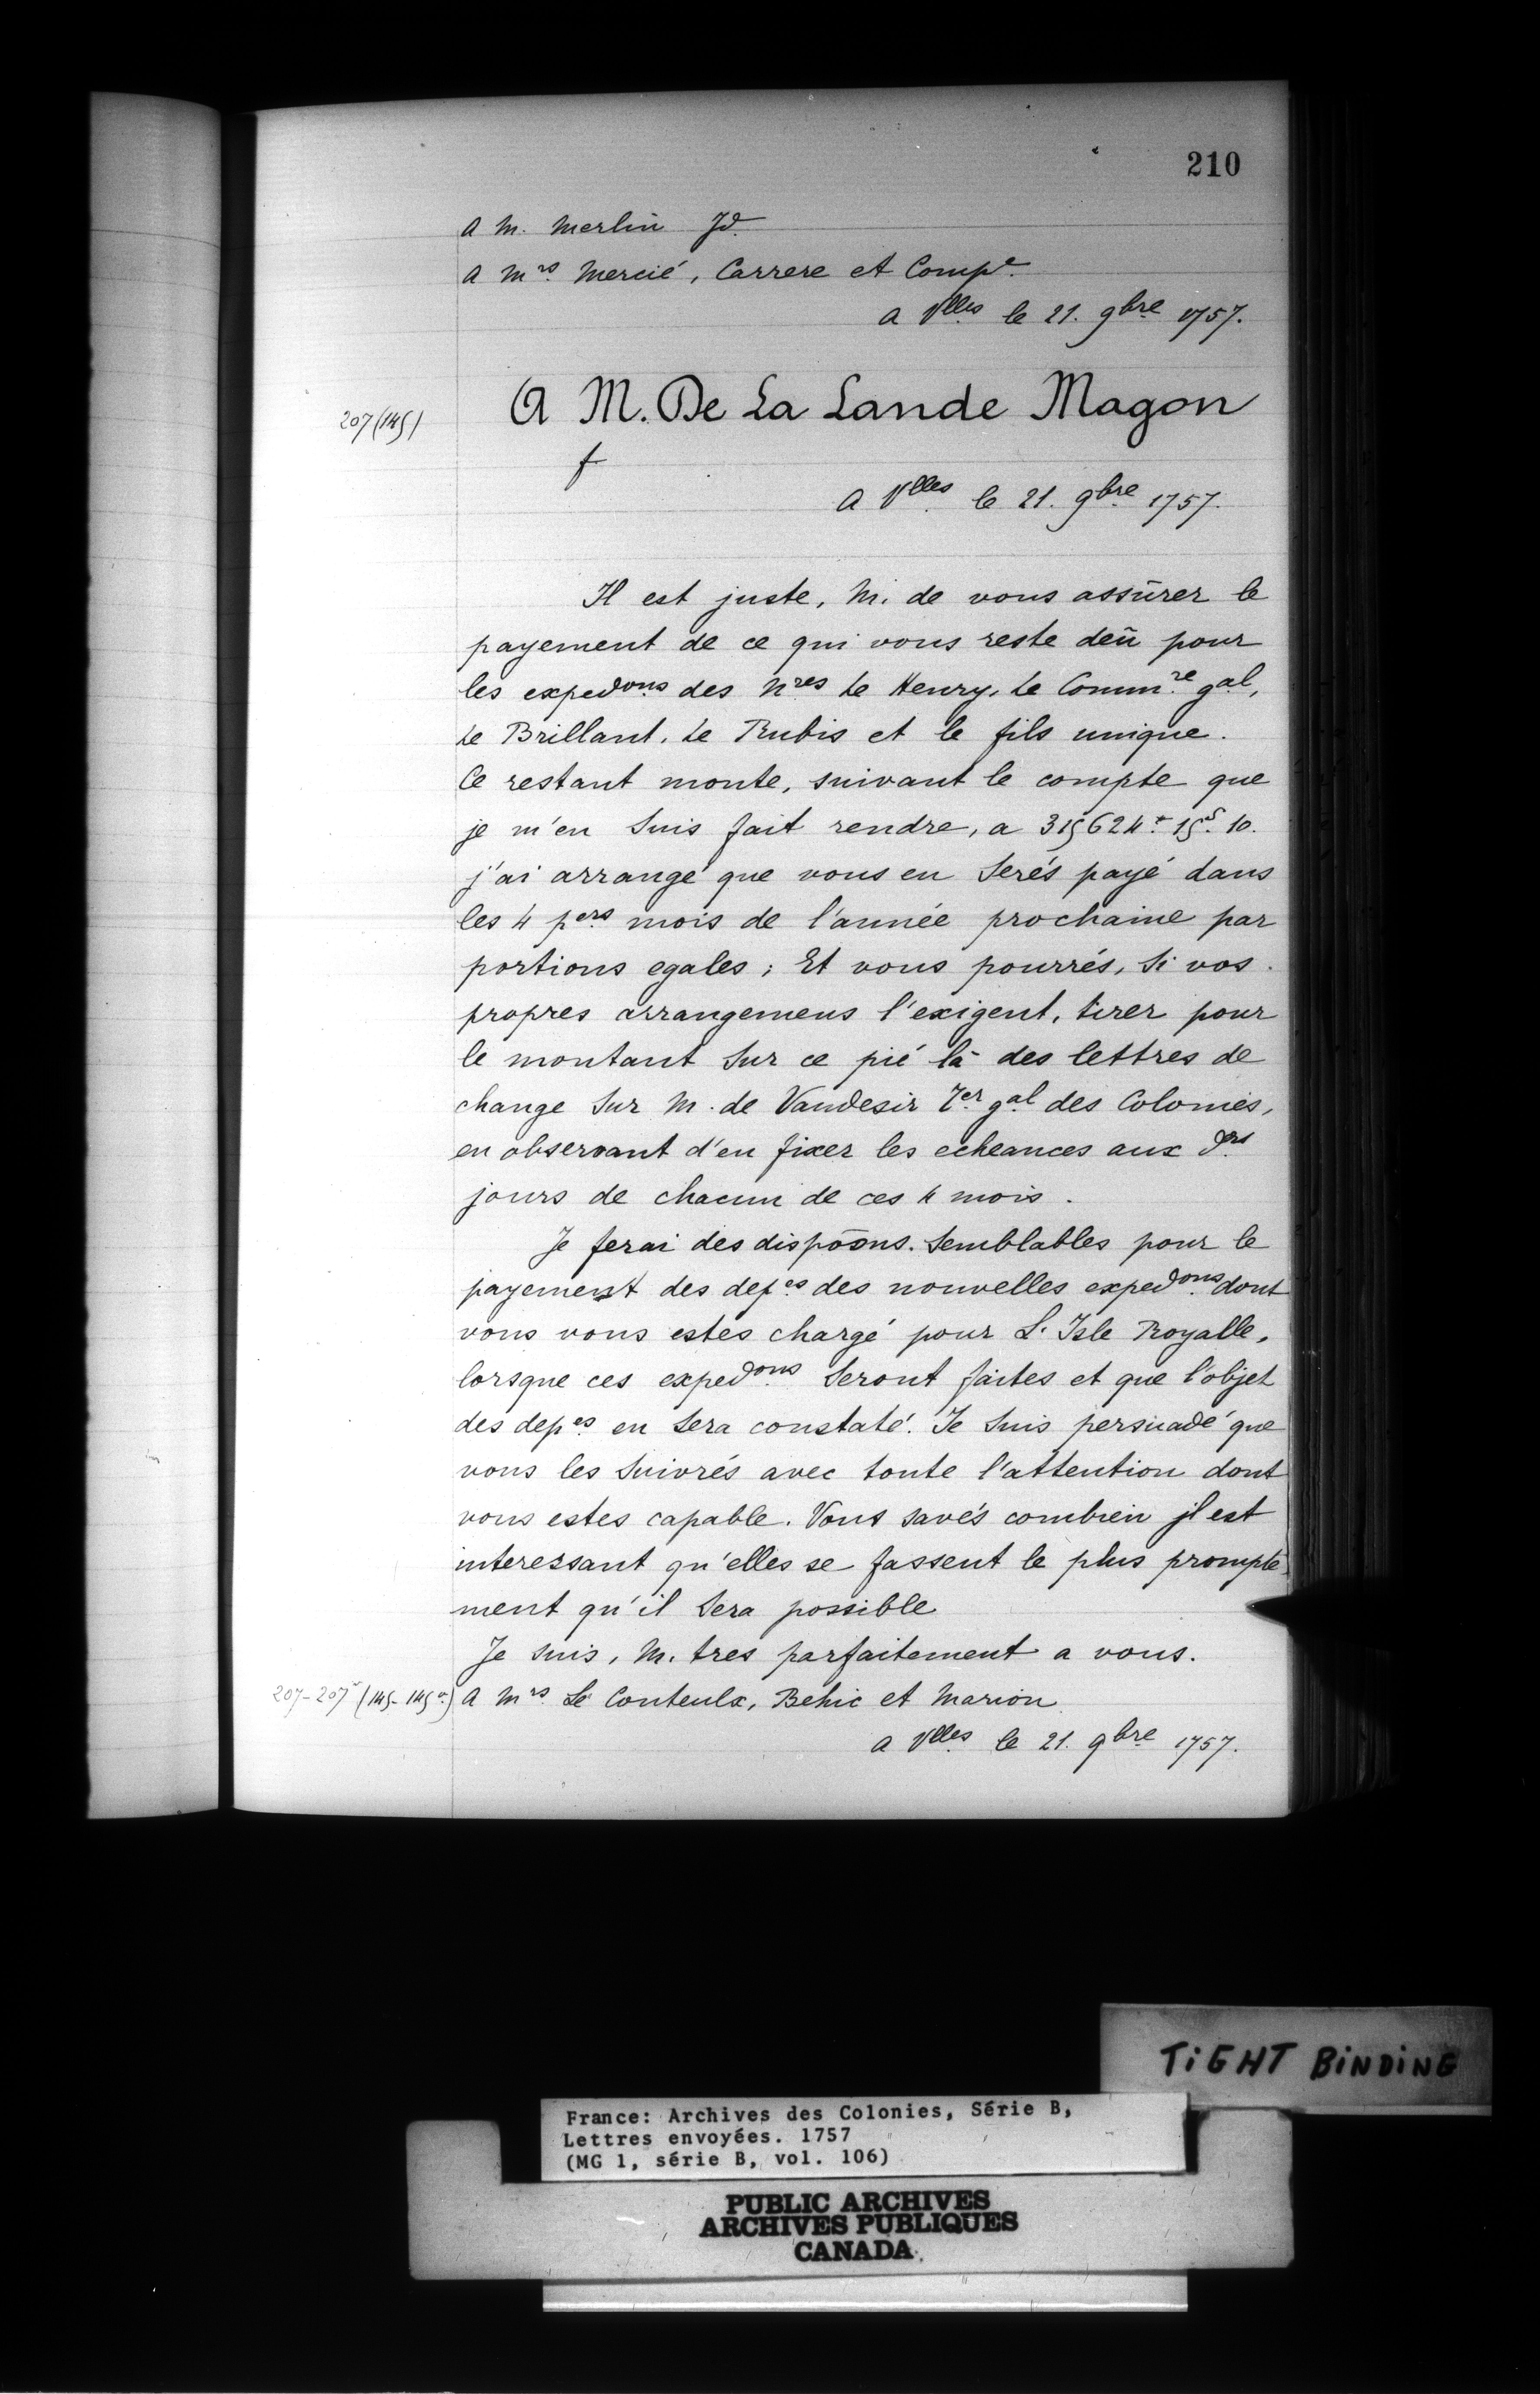 210
a M. Merlin Jd.
a Mrs. Mercié, Carrere et Compe.
a Vlles le 21. 9bre 1757.
207 (145)
A M. De La Lande Magon
f
a Vlles le 21. 9bre 1757.
Il est juste, M. de vous assûrer le
payement de ce qui vous reste deû pour
les expedons des Nres Le Henry, Le Commre gal,
Le Brillant, Le Rubis et le fils unique.
Ce restant monte, suivant le compte que
je m'en suis fait rendre, a 315624tt 15s. 10.
j'ai arrangé que vous en serés payé dans
les 4 pers mois de l'année prochaine par
portions egales; Et vous pourrés, si vos
propres arrangemens l'exigent, tirer pour
le montant sur ce pié là des lettres de
change sur M. de Vaudesir Ter gal des Colonies,
en observant d'en fixer les echeances aux ders
jours de chacun de ces 4 mois.
Je ferai des dispōons. semblables pour le
payement des depes des nouvelles expedons dont
vous vous estes chargé pour L'Isle Royalle,
lorsque ces expedons seront faites et que l'objet
des depes en sera constaté. Je suis persuadé que
vous les suivrés avec toute l'attention dont
vous estes capable. Vous savés combien jl est
interessant qu'elles se fassent le plus prompte
ment qu'il sera possible
Je suis, M. tres parfaitement a vous.
207-207v (145-145v.) a Mrs. Le Couteulx, Behic et Marion
a Vlles le 21. 9bre 1757.
TIGHT BINDING
France: Archives des Colonies, Série B,
Lettres envoyées. 1757
(MG 1, série B, vol. 106)
PUBLIC ARCHIVES
ARCHIVES PUBLIQUES
CANADA